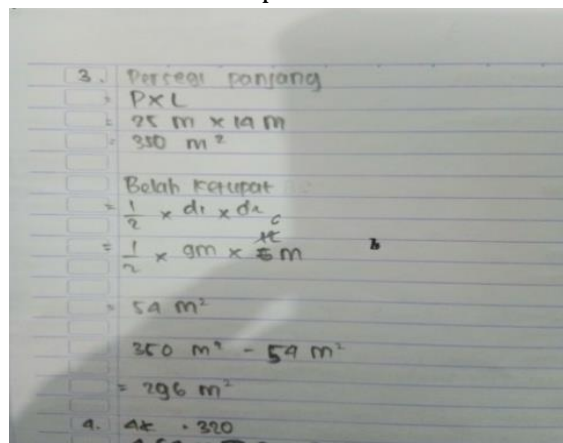 3. Persegi panjang
= P x L
= 25 m x 14 m
= 350 m²
Belah Ketupat
= 1/2 x d1 x d2
= 1/2 x 9m x 6 m
= 54 m²
350 m² - 54 m²
= 296 m²
4. 4x · 320